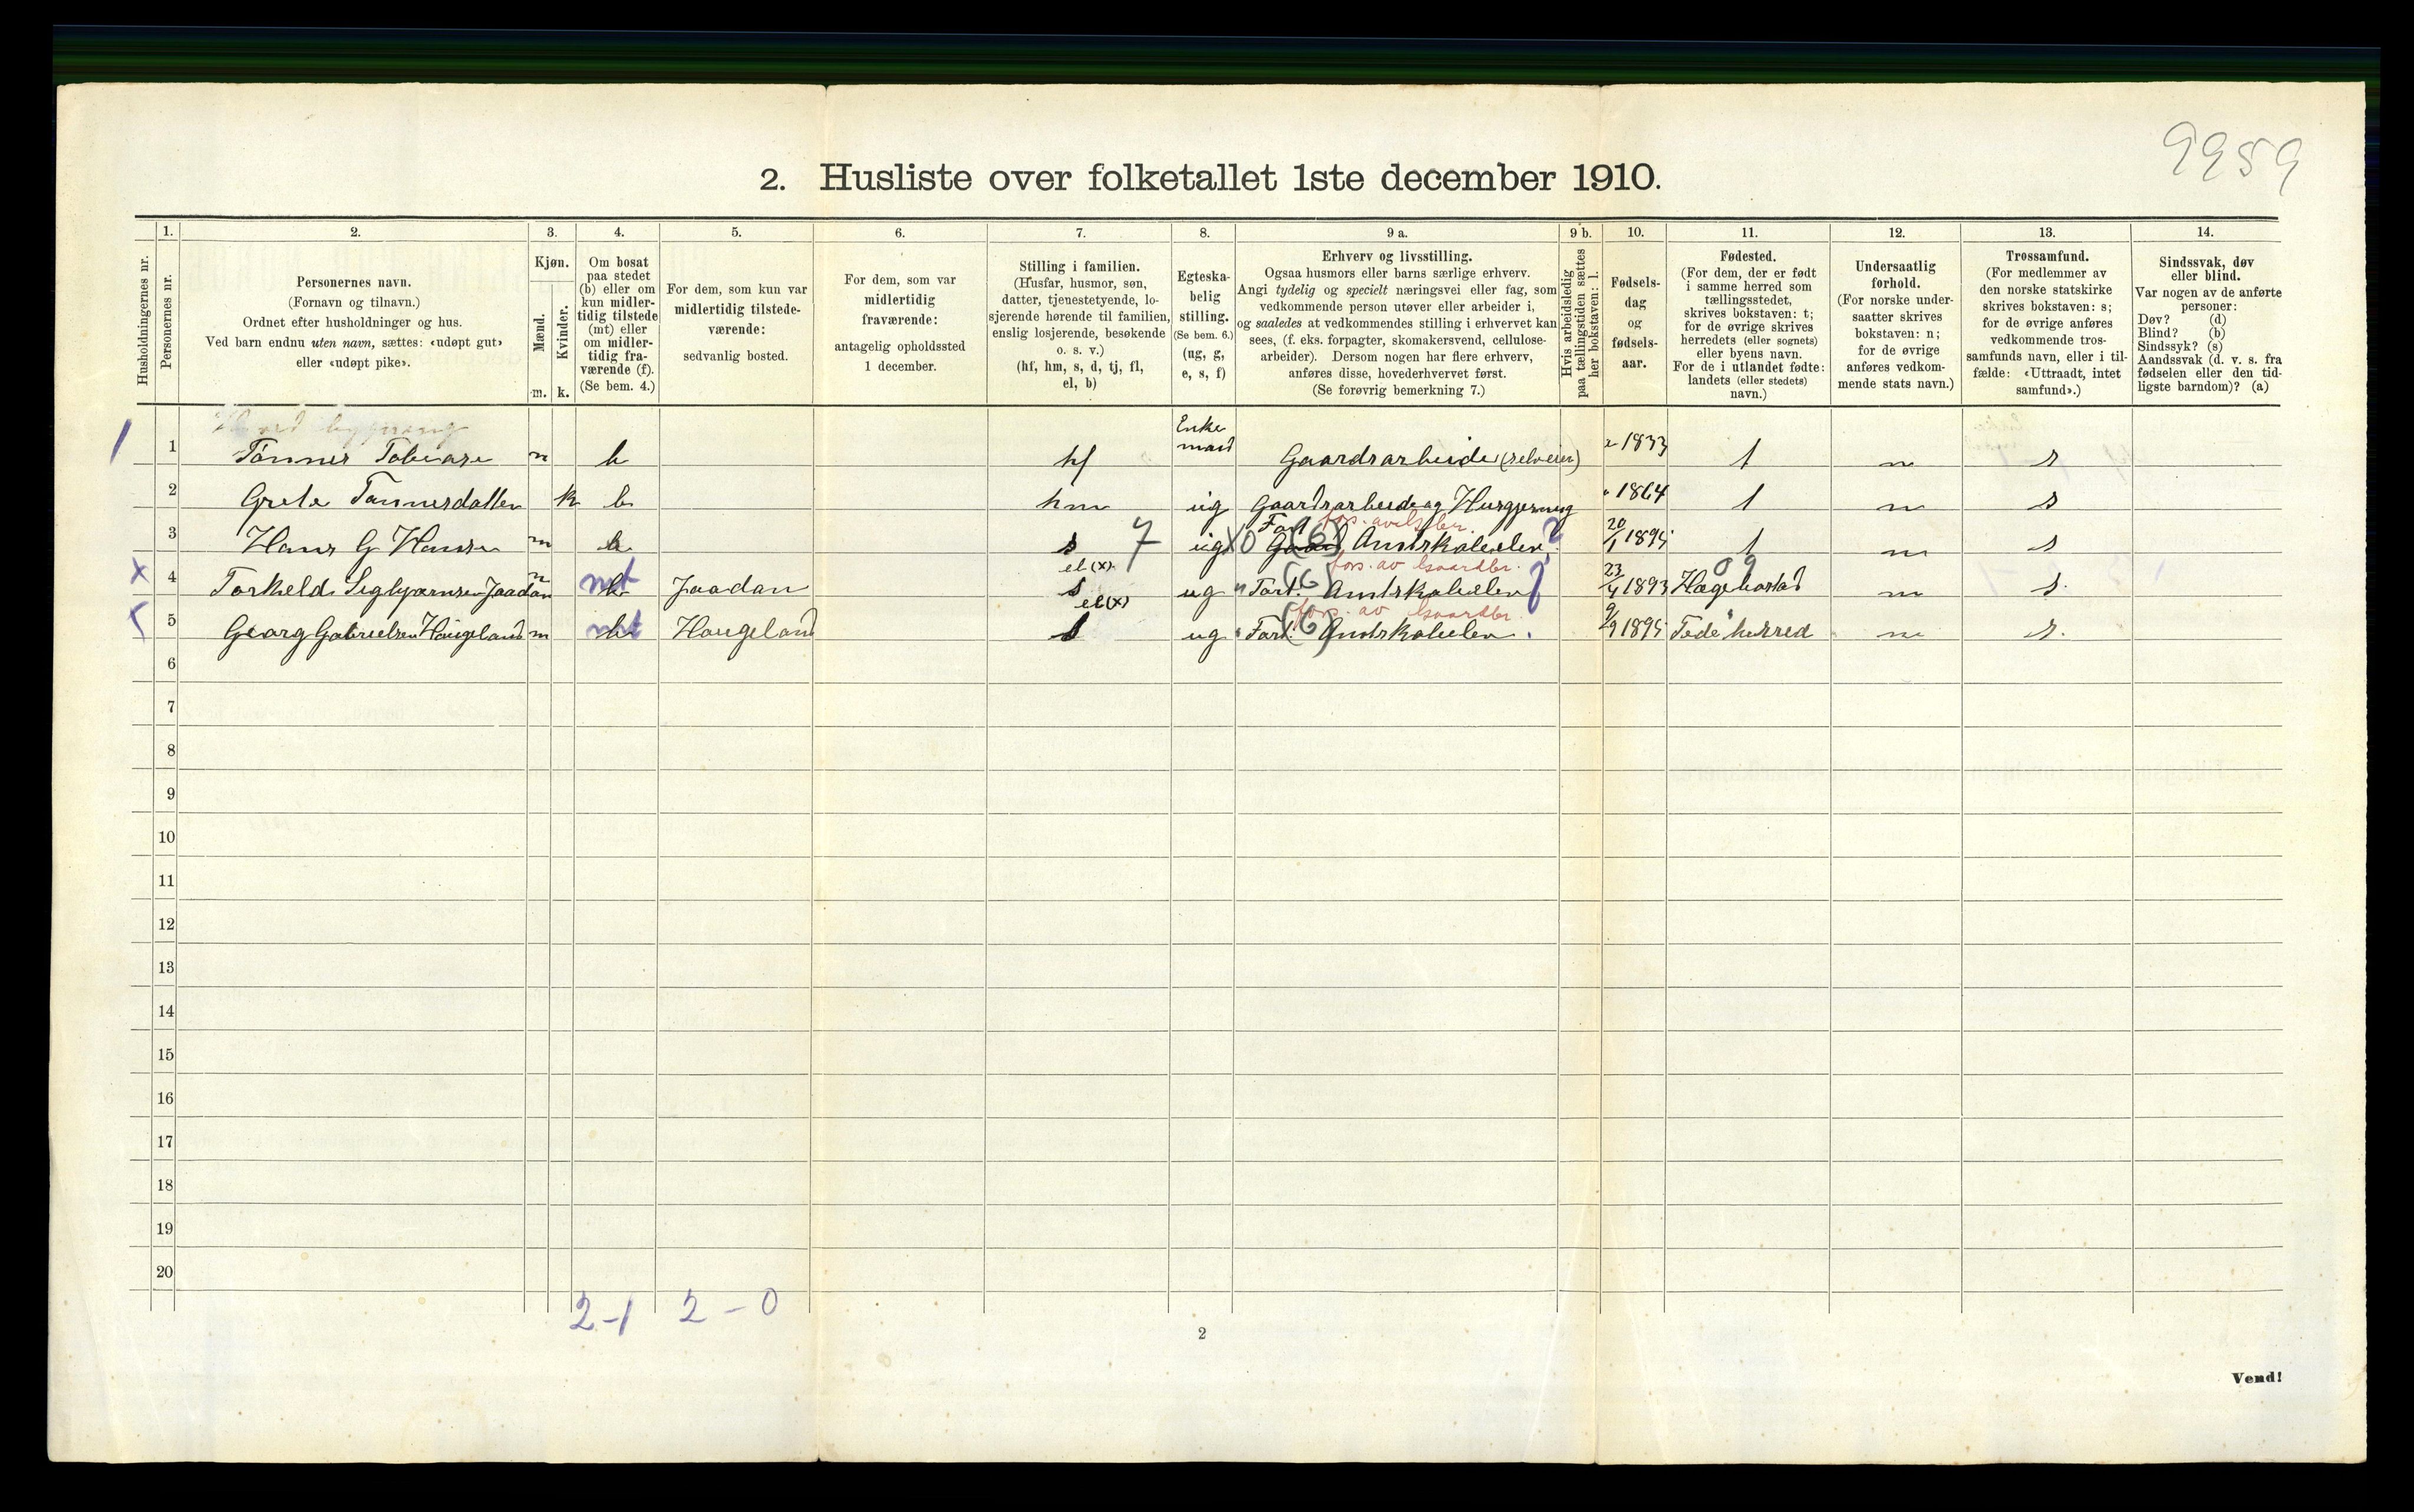 9959
2. Husliste over folketallet 1ste december 1910.
1. 2. 3. 4. 5. 6. 7. 8. 9 a. 9 b. 10. 11. 12. 13. 14.
Husholdningernes nr.
Personernes nr.
Personernes navn.
(Fornavn og tilnavn.)
Ordnet efter husholdninger og hus.
Ved barn endnu uten navn, sættes: «udøpt gut»
eller «udøpt pike».
Kjøn.
Mænd.
Kvinder.
m. k.
Om bosat
paa stedet
(b) eller om
kun midler-
tidig tilstede
(mt) eller
om midler-
tidig fra-
værende (f).
(Se bem. 4.)
For dem, som kun var
midlertidig tilstede-
værende:
sedvanlig bosted.
For dem, som var
midlertidig
fraværende:
antagelig opholdssted
1 december.
Stilling i familien.
(Husfar, husmor, søn,
datter, tjenestetyende, lo-
sjerende hørende til familien,
enslig losjerende, besøkende
o. s. v.)
(hf, hm, s, d, tj, fl,
el, b)
Egteska-
belig
stilling.
(Se bem. 6.)
(ug, g,
e, s, f)
Erhverv og livsstilling.
Ogsaa husmors eller barns særlige erhverv.
Angi tydelig og specielt næringsvei eller fag, som
vedkommende person utøver eller arbeider i,
og saaledes at vedkommendes stilling i erhvervet kan
sees, (f. eks. forpagter, skomakersvend, cellulose-
arbeider). Dersom nogen har flere erhverv,
anføres disse, hovederhvervet først.
(Se forøvrig bemerkning 7.)
Hvis arbeidsledig
paa tællingstiden sættes
her bokstaven: l.
Fødsels-
dag
og
fødsels-
aar.
Fødested.
(For dem, der er født
i samme herred som
tællingsstedet,
skrives bokstaven: t;
for de øvrige skrives
herredets (eller sognets)
eller byens navn.
For de i utlandet fødte:
landets (eller stedets)
navn.)
Undersaatlig
forhold.
(For norske under-
saatter skrives
bokstaven: n;
for de øvrige
anføres vedkom-
mende stats navn.)
Trossamfund.
(For medlemmer av
den norske statskirke
skrives bokstaven: s;
for de øvrige anføres
vedkommende tros-
samfunds navn, eller i til-
fælde: «Uttraadt, intet
samfund».)
Sindssvak, døv
eller blind.
Var nogen av de anførte
personer:
Døv? (d)
Blind? (b)
Sindssyk? (s)
Aandssvak (d. v. s. fra
fødselen eller den tid-
ligste barndom)? (a)
1 1 Tønnes Tobiase m b hf Enke mand Gaardsarbeide (selveier) 1833 t n s
2 Grete Tønnesdatter k b hm ug Gaardsarbeide og Husgjerning 1864 t n s
3 Hans G Hansen m b s 7 ug X0 (6) Amtskoleelev 20/1 1895 t n s
x 4 Torkeld Sigbjørnsen Jaadan m mt Jaadan s el (x) ug Fort. (6) Amtskoleelev 23/4 1893 Hægebostad n s.
5 Georg Gabrielsen Haugeland m mt Haugeland s el (x) ug Fort. (6) Amtskoleelev. 9/9 1895 Fede herred n s.
6
7
8
9
10
11
12
13
14
15
16
17
18
19
20
2-1 2-0
2
Vend!